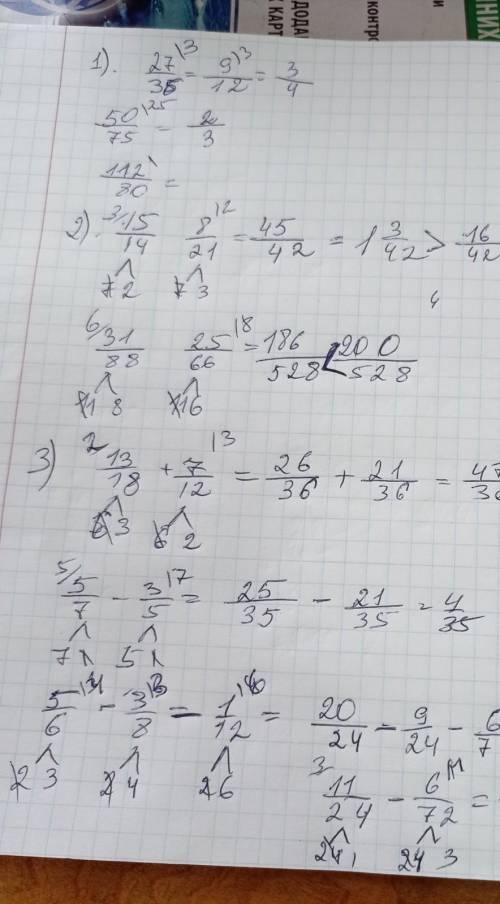 ДОДА
К КАРТ
контро
и
НИХ
1). 27/36 \3 = 9/12 \3 = 3/4
50/75 \25 = 2/3
112/80 \ =
2). 3/ 15/14 8/21 \2 = 45/42 = 1 3/42 > 16/42
7 2 7 3
4
6/ 31/88 25/66 \8 = 186/528 < 200/528
11 8 11 6
3) 2/ 13/18 + 7/12 \3 = 26/36 + 21/36 = 47/36
6 3 6 2
5/ 5/7 - 3/5 \7 = 25/35 - 21/35 = 4/35
7 1 5 1
5/6 \4 - 3/8 \3 - 1/12 \6 = 20/24 - 9/24 - 6/7
2 3 2 4 2 6
3/ 11/24 - 6/72 \1 =
24 1 24 3